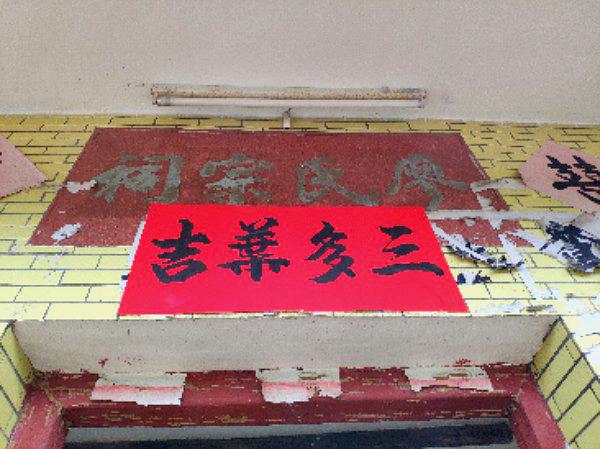 廖氏宗祠
三多葉吉